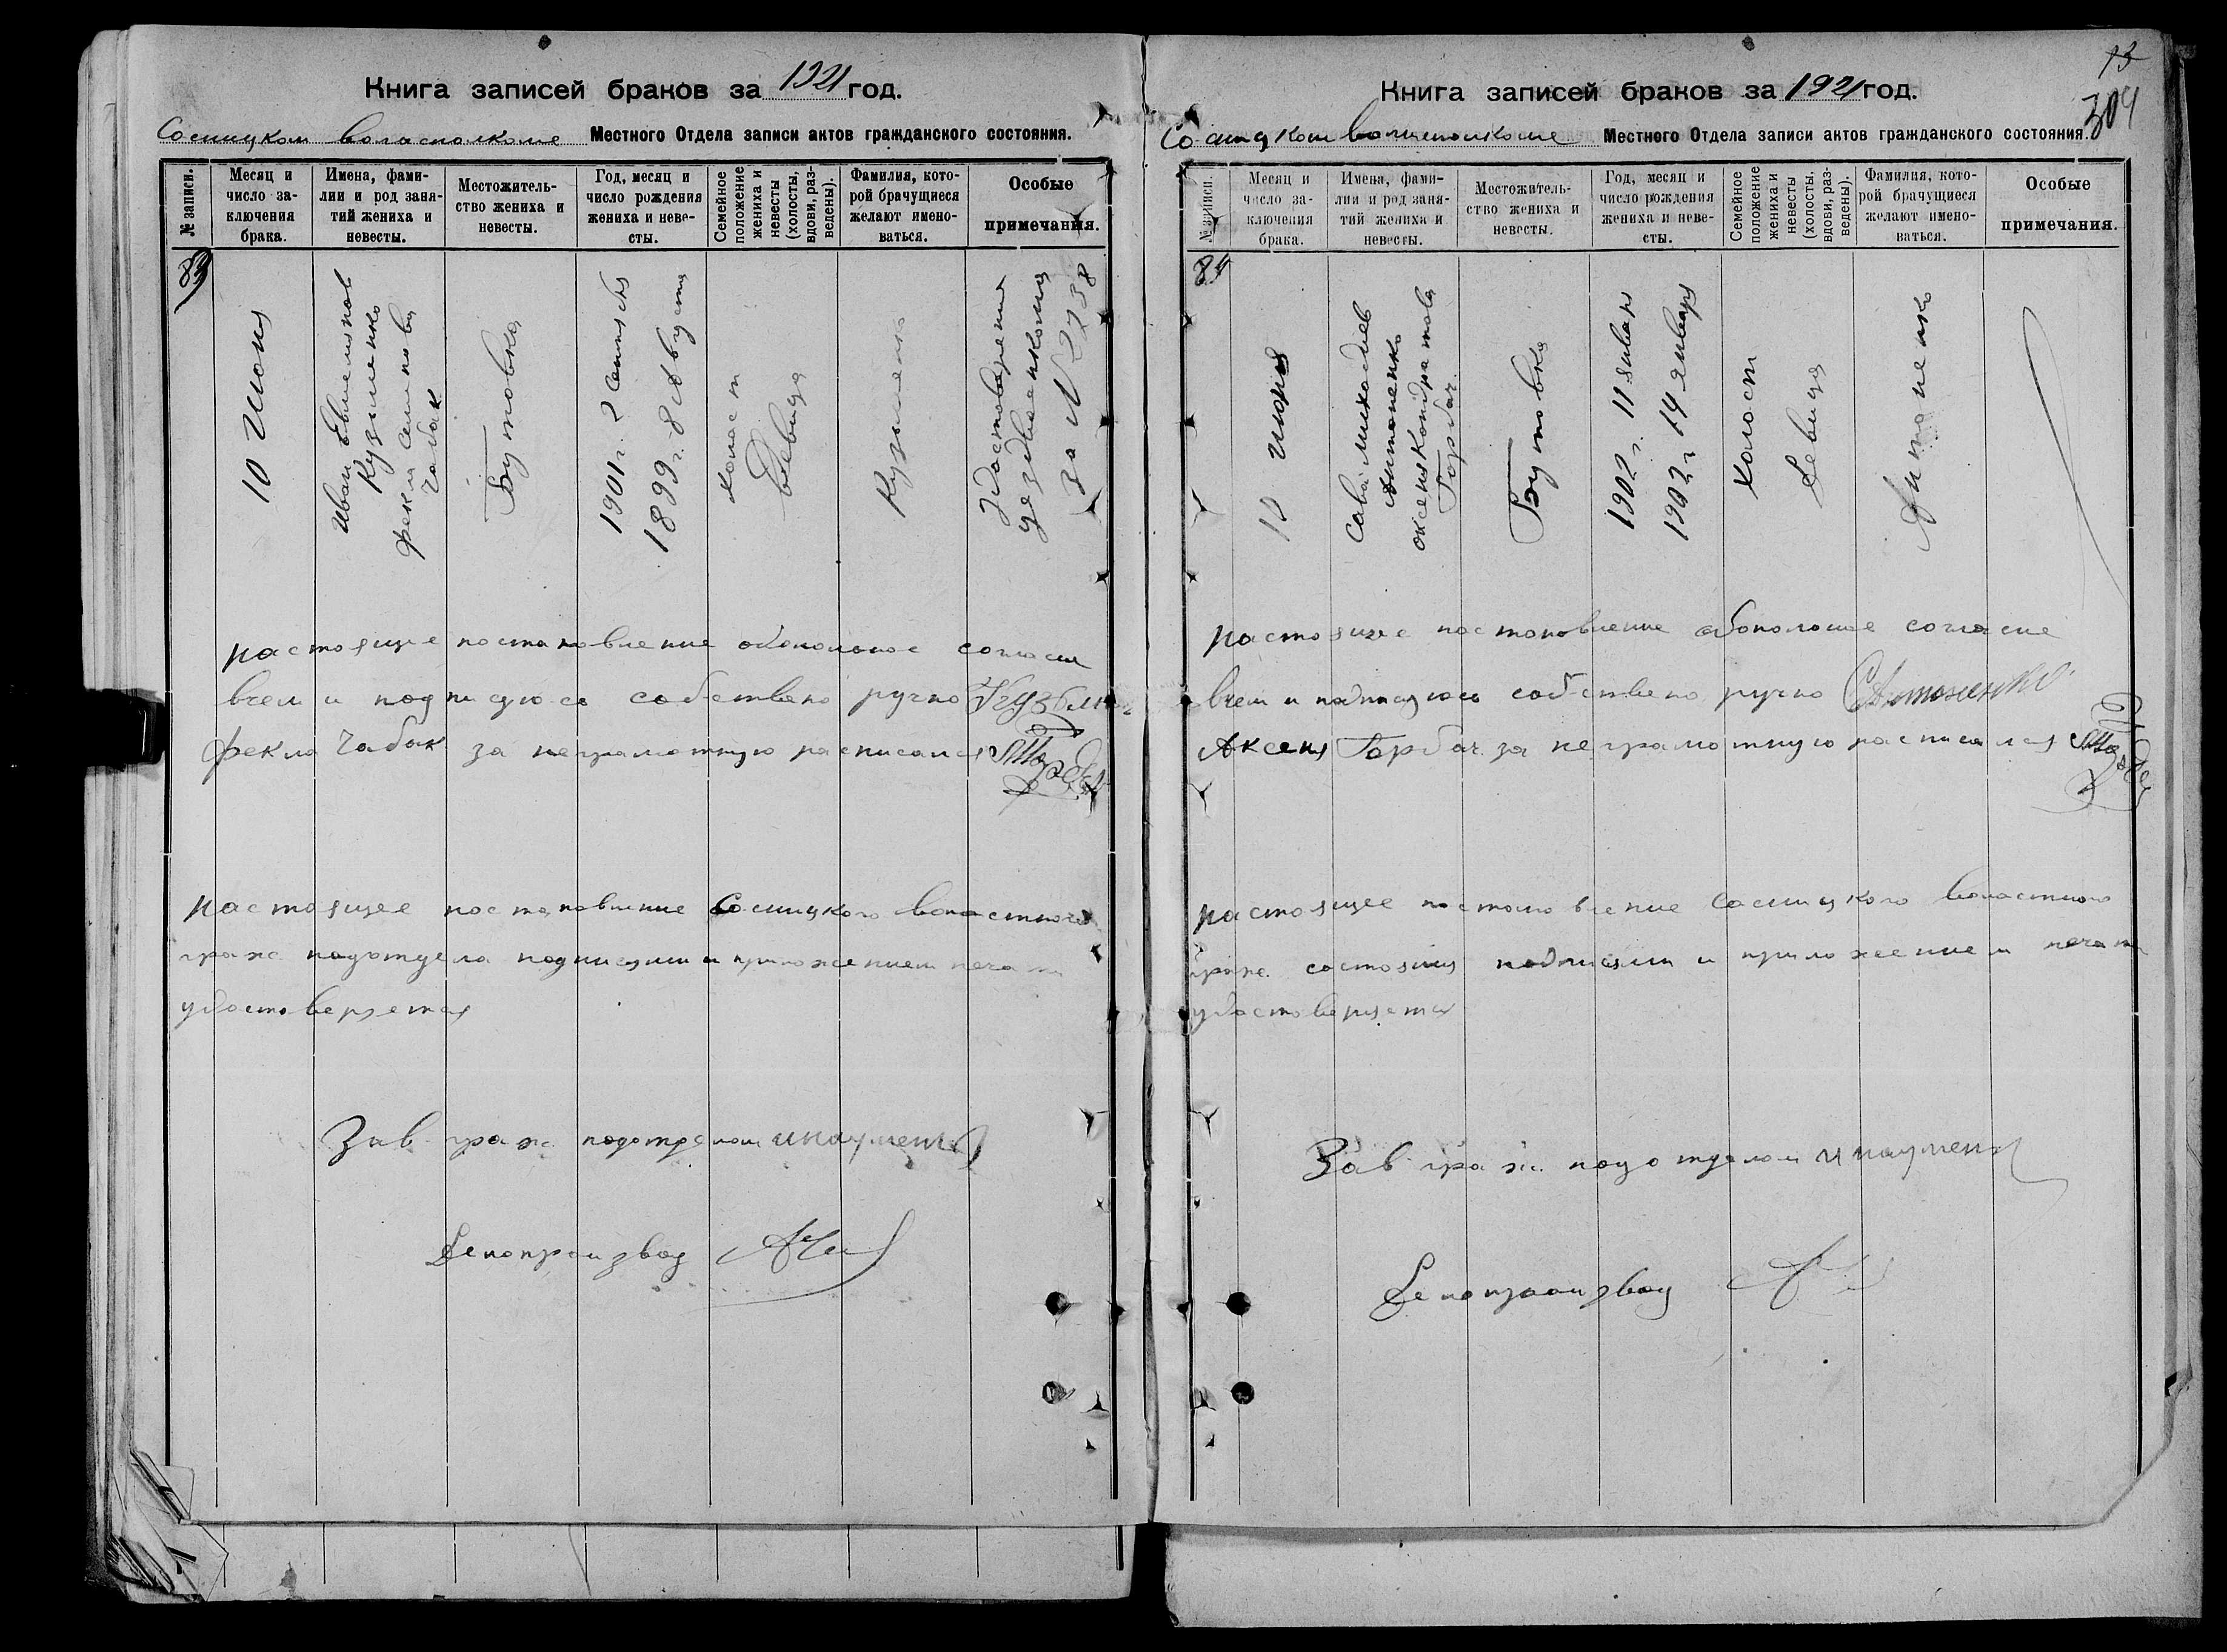 Книга записей браков за 1921 год.
Сосницком воласполкоме Местного Отдела записи актов гражданского состояния.
№ записи.
Месяц и число за-
ключения
брака.
Имена, фами-
лии и род заня-
тий жениха и
невесты.
Местожитель-
ство жениха и
невесты.
Год, месяц и
число рождения
жениха и неве-
сты.
Семейное
положение
жениха и
невесты
(холосты,
вдови, раз-
ведены).
Фамилия, кото-
рой брачущиеся
желают имено-
ваться.
Особые
примечания.
83
10 Июня
Иван Евменов
Кузьменко
Фекла
Чабак
Бутовка
1901 г. 2
1899 г. 8 Августа
холост
девица
Кузьменко
за № 2238
настоящее постановление согласи
всем и подписуюсь собствено ручно Кузьмен
Фекла Чабак за неграмотную расписался
настоящее постановление Сосницкого воластного
граж. подотдела подписями и приложением печати
удостоверяется
Зав граж. подотделом
Делопроизвод
13
304
Книга записей браков за 1921 год.
Сосницком Местного Отдела записи актов гражданского состояния.
№ записи.
Месяц и
число за-
ключения
брака.
Имена, фами-
лии и род заня-
тий жениха и
невесты.
Местожитель-
ство жениха и
невесты.
Год, месяц и
число рождения
жениха и неве-
сты.
Семейное
положение
жениха и
невесты
(холосты,
вдови, раз-
ведены).
Фамилия, кото-
рой брачущиеся
желают имено-
ваться.
Особые
примечания.
84
10 июня
Сава Михайлов
Антоненко
Оксения Кондратова
Горбач.
Бутовка
1902 г. 11 января
1902 г. 14 января
холост
девица
Антоненко
настоящее постановление согласие
всем и подписуюсь собствено ручно САнтоненко
Аксеня Горбач за неграмотную расписался
настоящее постановление Сосницкого воластного
граж. состояния подписями и приложением печати
удостоверяется
Зав граж. подотделом
Делопроизвод